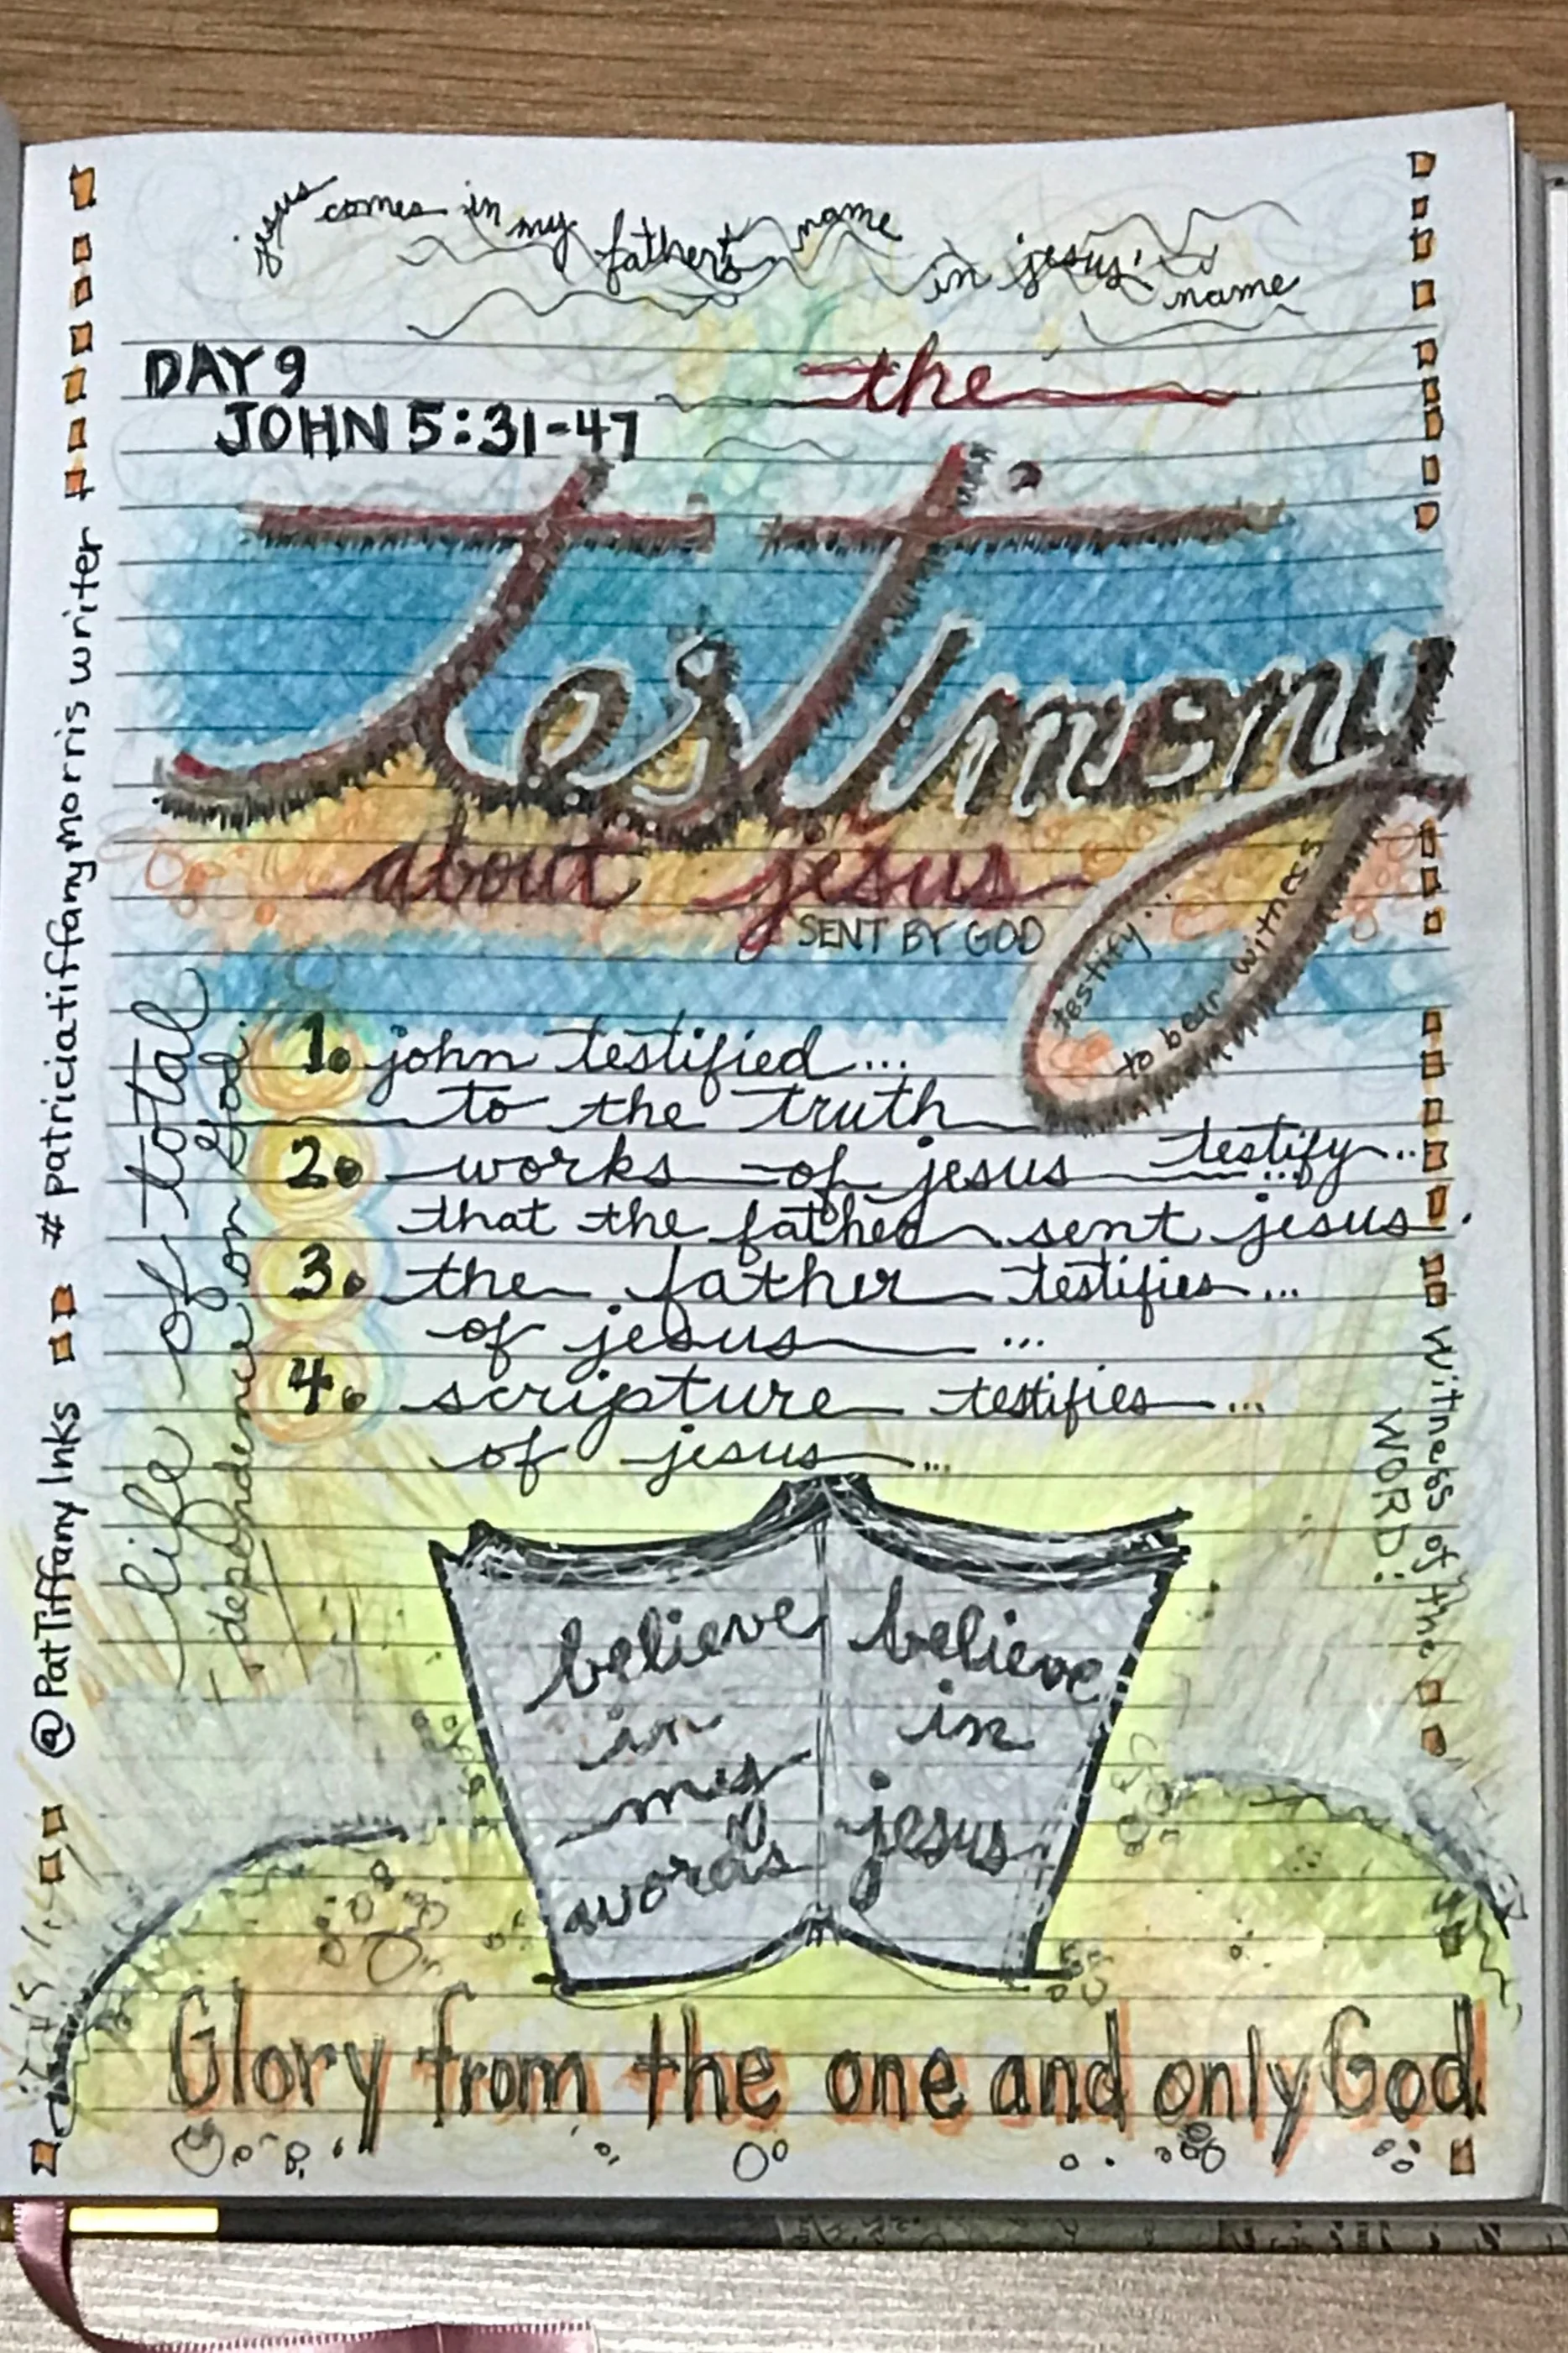 jesus comes in my father's name
in jesus' name
DAY 9
JOHN 5:31-47
the
testimony
about jesus
SENT BY GOD
testify...
to bear witness
1. john testified...
to the truth
2. works of jesus testify...
that the father sent jesus.
3. the father testifies...
of jesus...
4. scripture testifies...
of jesus...
life of total
dependence on God.
# patriciatiffanymorris writer
@PatTiffany Inks
witness of the
WORD:
believe
in
my
words
believe
in
jesus
Glory from the one and only God